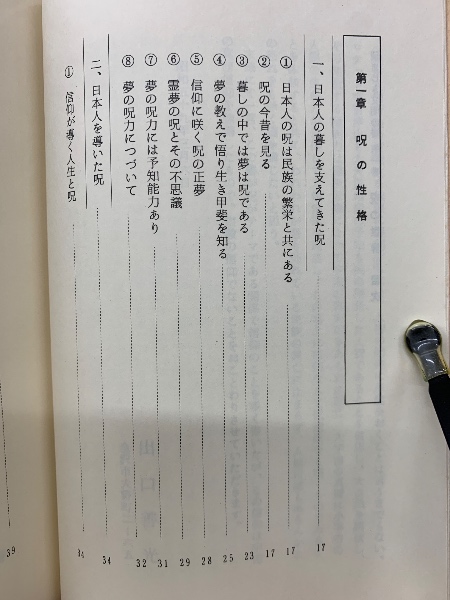 第一章　呪の性格
一、日本人の暮しを支えてきた呪 17
① 日本人の呪は民族の繁栄と共にある 17
② 呪の今昔を見る 17
③ 暮しの中では夢は呪である 23
④ 夢の教えで悟り生き甲斐を知る 25
⑤ 信仰に咲く呪の正夢 28
⑥ 霊夢の呪とその不思議 29
⑦ 夢の呪力には予知能力あり 31
⑧ 夢の呪力につづいて 32
二、日本人を導いた呪 34
① 信仰が導く人生と呪 34
39